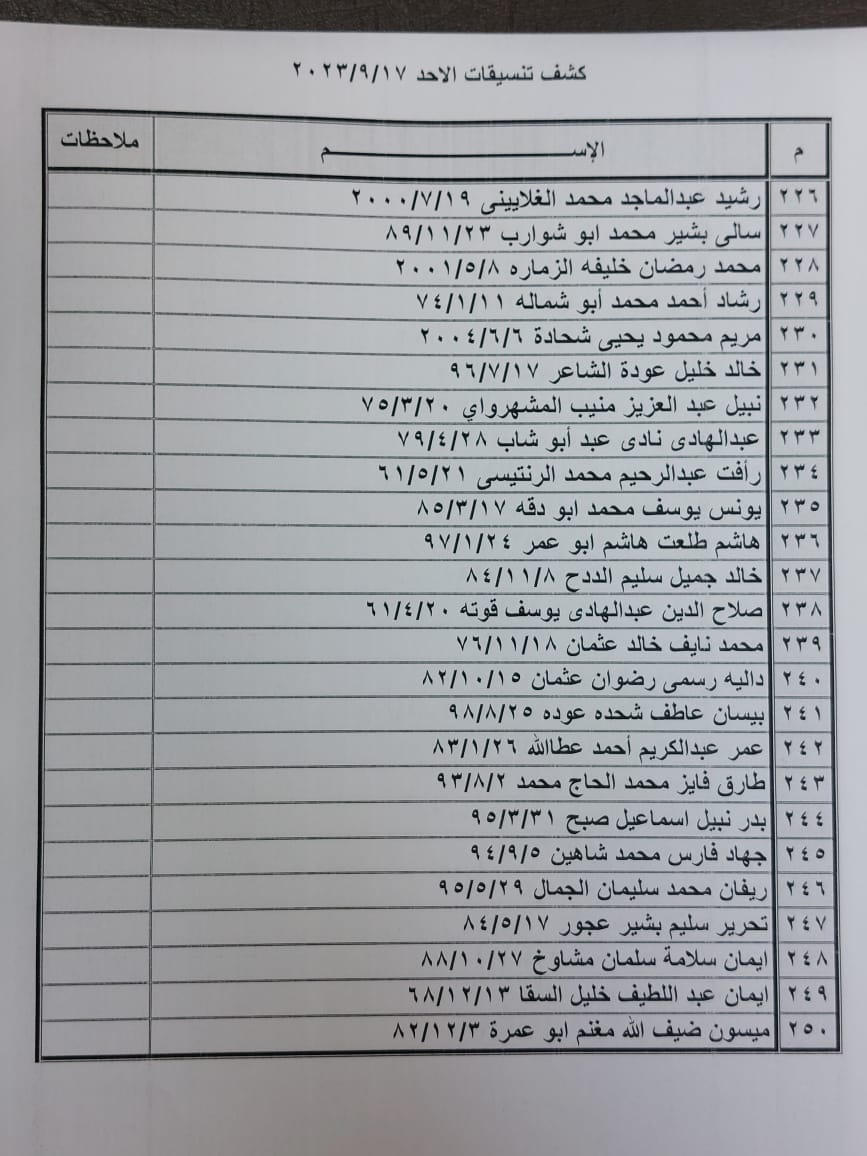 كشف تنسيقات الاحد ٢٠٢٣/٩/١٧
م الإســـم ملاحظات
٢٢٦ رشيد عبدالماجد محمد الغلاييني ٢٠٠٠/٧/١٩
٢٢٧ سالى بشير محمد ابو شوارب ٨٩/١١/٢٣
٢٢٨ محمد رمضان خليفه الزماره ٢٠٠١/٥/٨
٢٢٩ رشاد أحمد محمد أبو شماله ٧٤/١/١١
٢٣٠ مريم محمود يحيى شحادة ٢٠٠٤/٦/٦
٢٣١ خالد خليل عودة الشاعر ٩٦/٧/١٧
٢٣٢ نبيل عبد العزيز منيب المشهرواي ٧٥/٣/٢٠
٢٣٣ عبدالهادى نادى عبد أبو شاب ٧٩/٤/٢٨
٢٣٤ رأفت عبدالرحيم محمد الرنتيسى ٦١/٥/٢١
٢٣٥ يونس يوسف محمد ابو دقه ٨٥/٣/١٧
٢٣٦ هاشم طلعت هاشم ابو عمر ٩٧/١/٢٤
٢٣٧ خالد جميل سليم الددح ٨٤/١١/٨
٢٣٨ صلاح الدين عبدالهادى يوسف قوته ٦١/٤/٢٠
٢٣٩ محمد نايف خالد عثمان ٧٦/١١/١٨
٢٤٠ داليه رسمى رضوان عثمان ٨٢/١٠/١٥
٢٤١ بيسان عاطف شحده عوده ٩٨/٨/٢٥
٢٤٢ عمر عبدالكريم أحمد عطاالله ٨٣/١/٢٦
٢٤٣ طارق فايز محمد الحاج محمد ٩٣/٨/٢
٢٤٤ بدر نبيل اسماعيل صبح ٩٥/٣/٣١
٢٤٥ جهاد فارس محمد شاهين ٩٤/٩/٥
٢٤٦ ريفان محمد سليمان الجمال ٩٥/٥/٢٩
٢٤٧ تحرير سليم بشير عجور ٨٤/٥/١٧
٢٤٨ ايمان سلامة سلمان مشاوخ ٨٨/١٠/٢٧
٢٤٩ ايمان عبد اللطيف خليل السقا ٦٨/١٢/١٣
٢٥٠ ميسون ضيف الله مغنم ابو عمرة ٨٢/١٢/٣